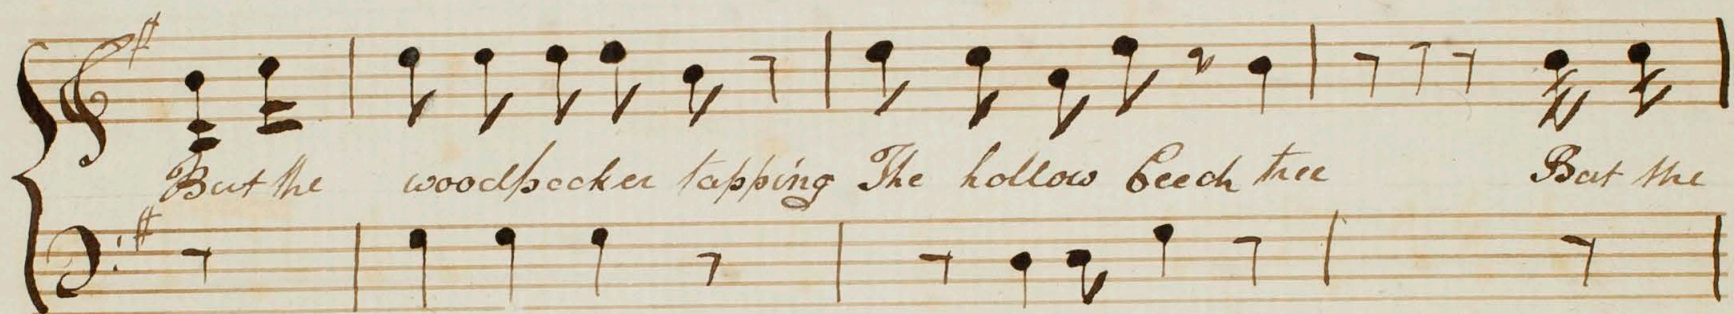 But the woodpecker tapping The hollow beech tree But the